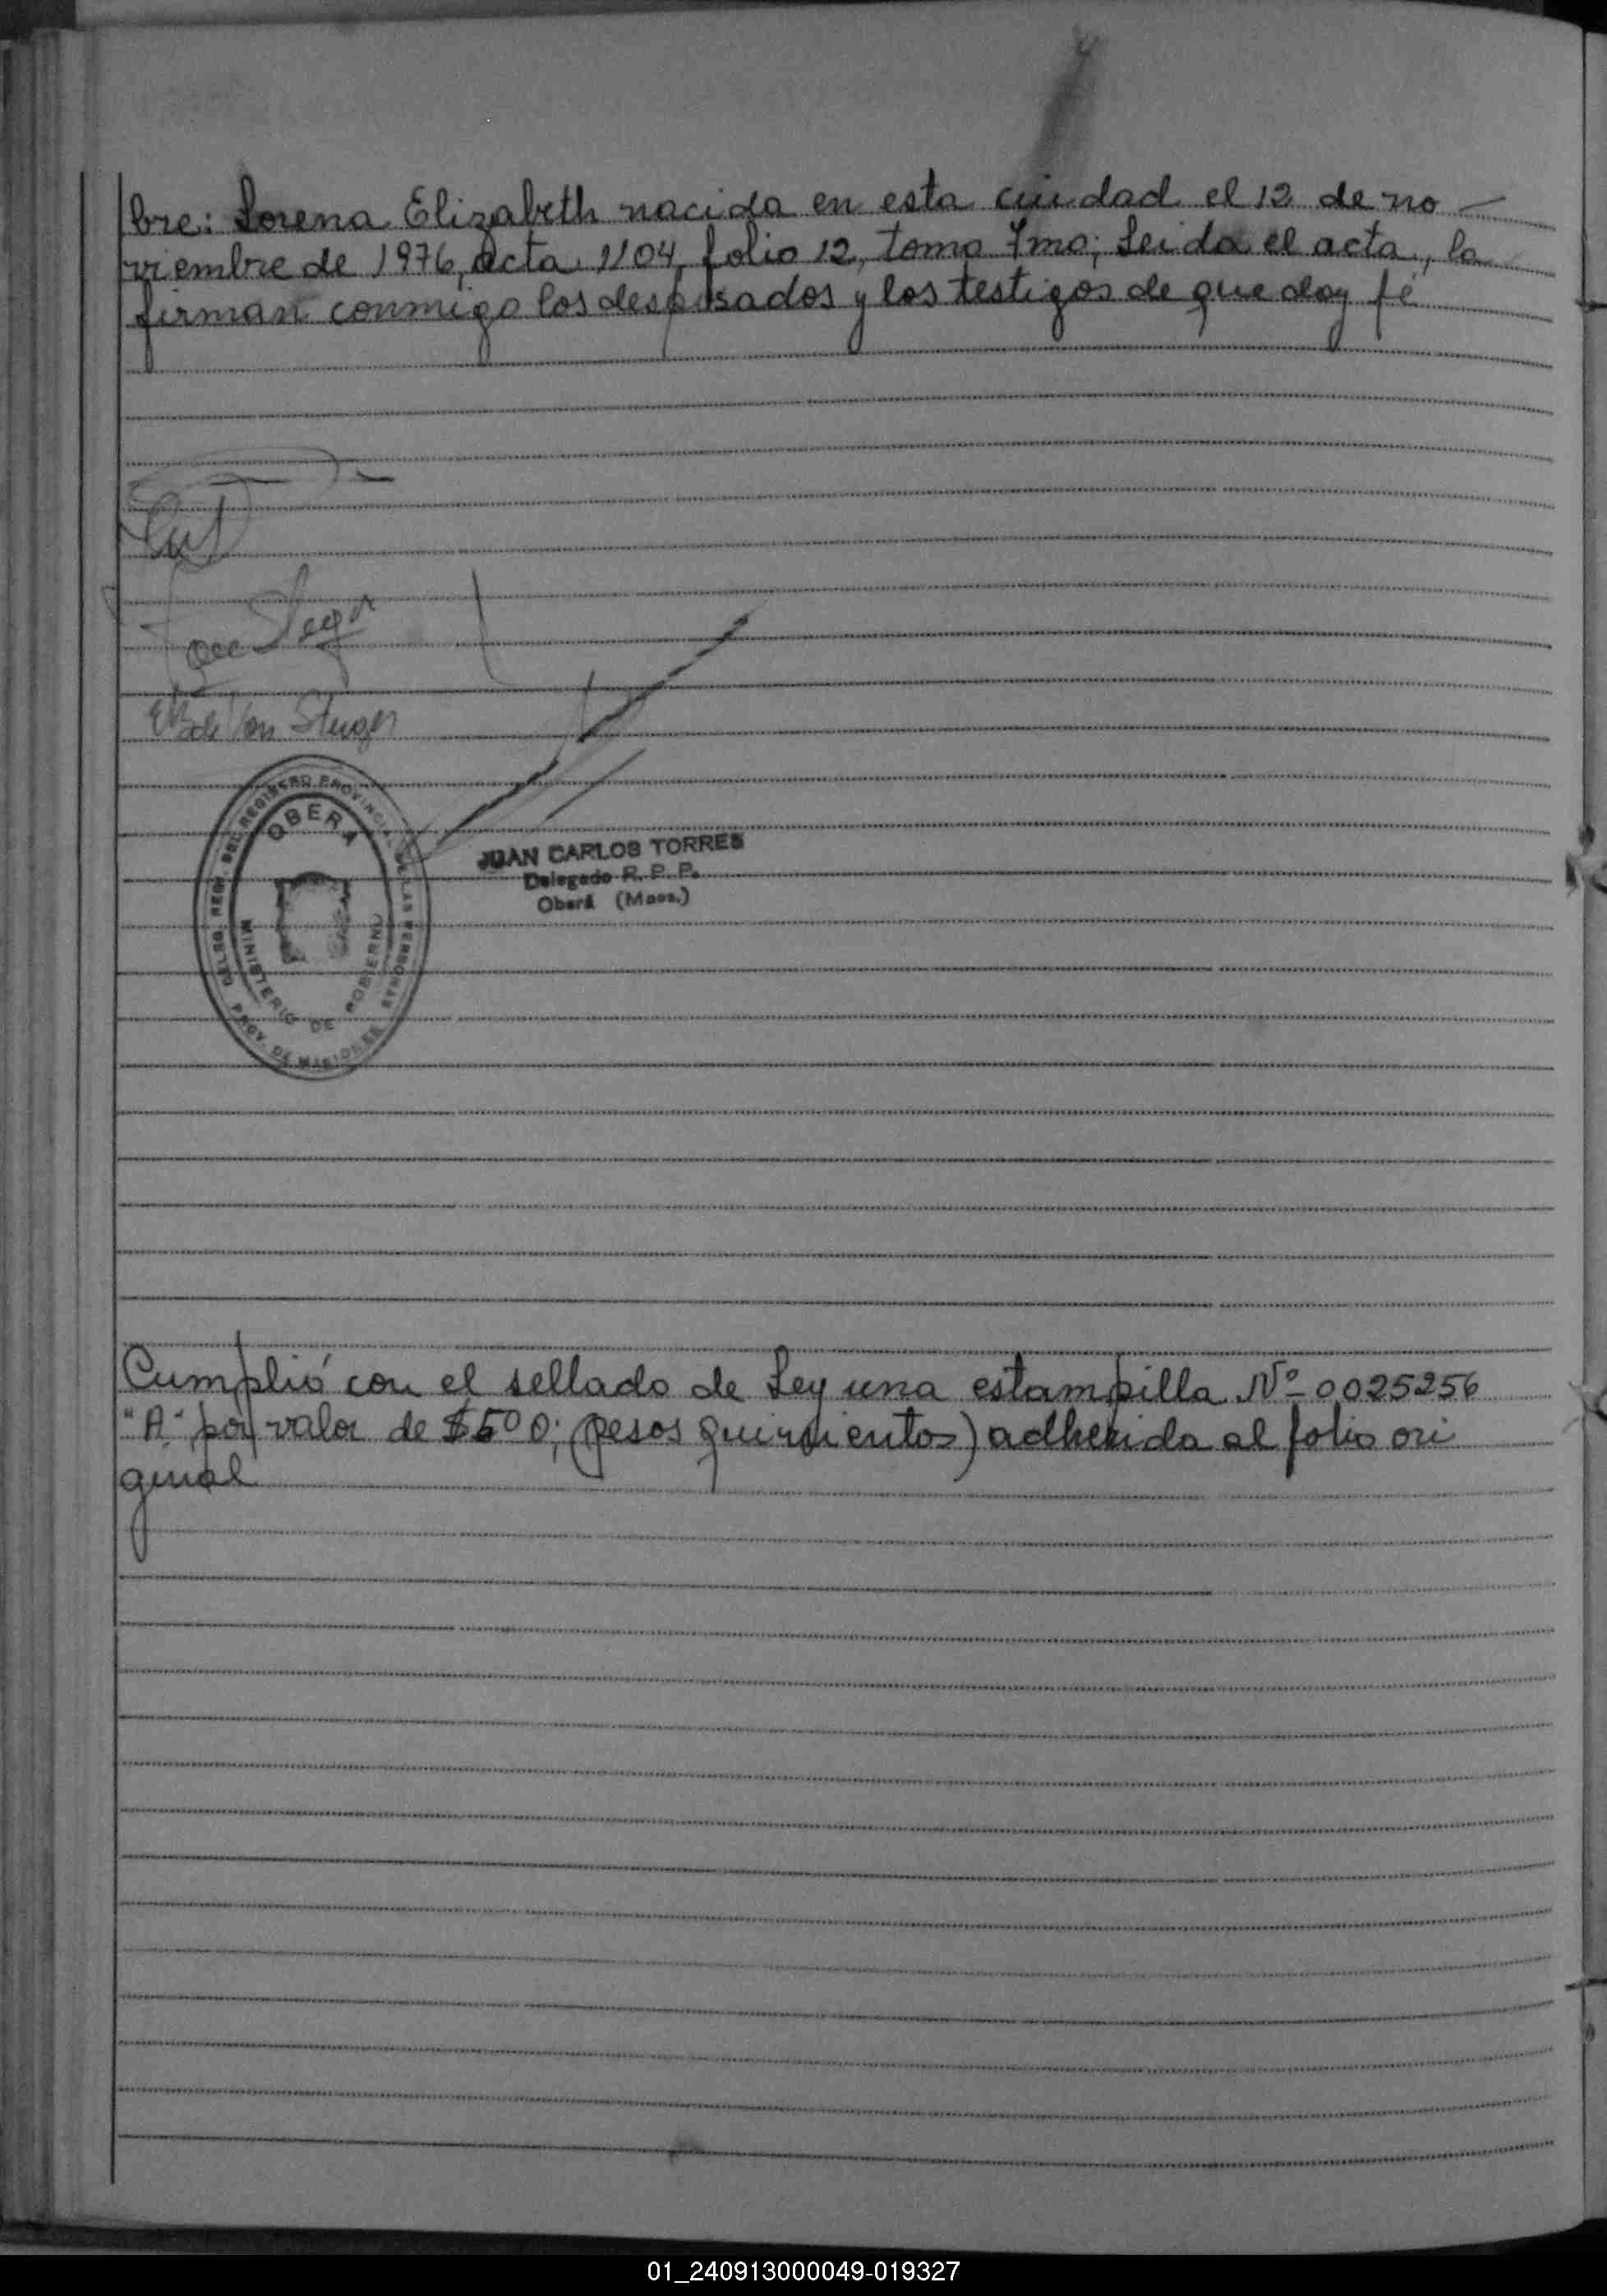 bre: Lorena Elizabeth nacida en esta ciudad el 12 de no
viembre de 1976, acta 1104, folio 12, tomo 7mo; Leida el acta, la
firman conmigo los desposados y los testigos de que doy fé
Von Steiger
DELEG. REGI. DEL REGISTRO PROVINCIAL DE LAS PERSONAS
PROV. DE MISIONES
OBERA
MINISTERIO DE GOBIERNO
JUAN CARLOS TORRES
Delegado R. P. P.
Oberá (Mnes.)
Cumplió con el sellado de Ley una estampilla Nº 0025256
"A" por valor de $500; (pesos quinientos) adherida al folio ori
ginal
01_240913000049-019327